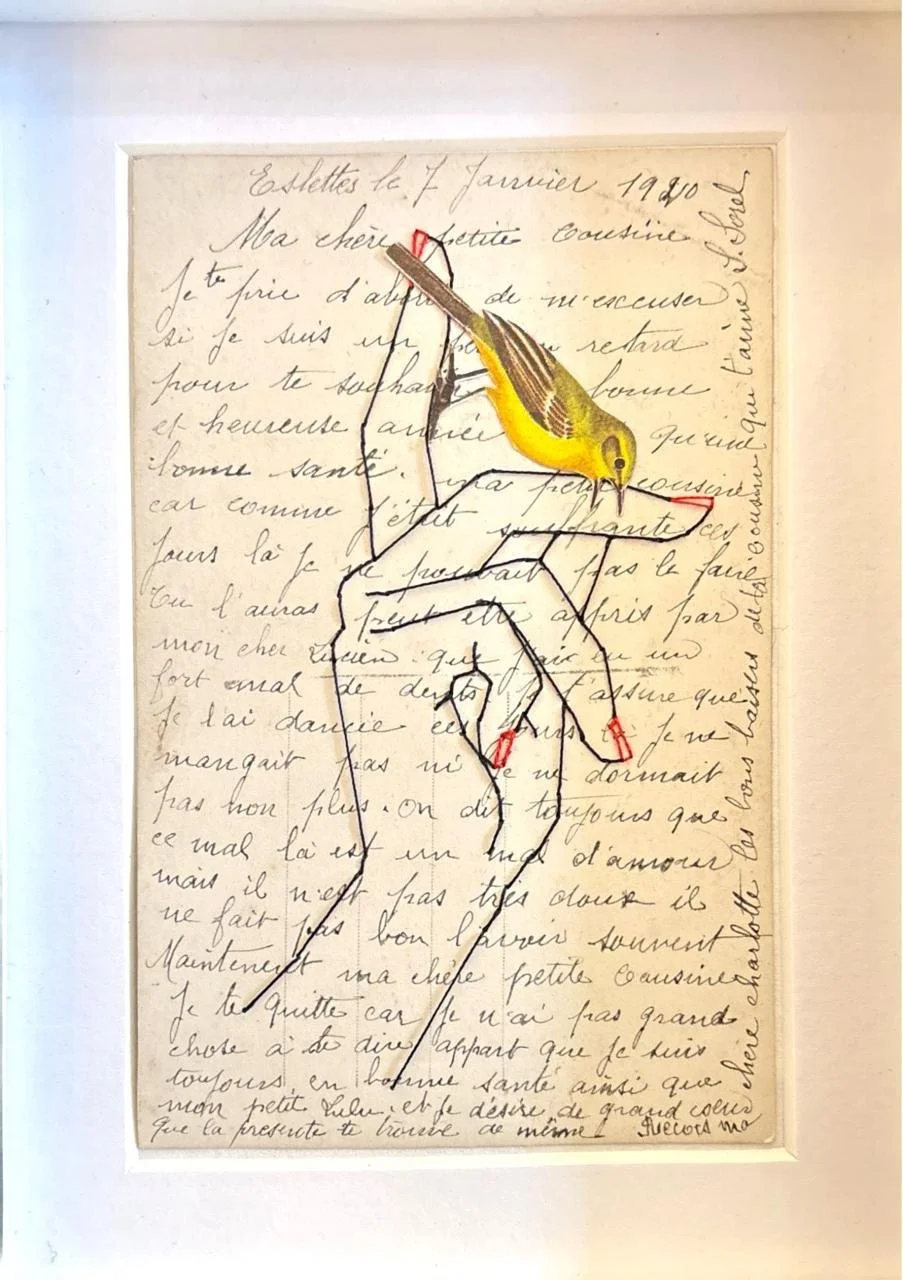 Eslettes le 7 Janvier 1920
Ma chère petite Cousine
Je te prie d'abord de m'excuser
si je suis un retard
pour te souhaiter bonne
et heureuse année qu'une
bonne santé. ma petite cousine
car comme j'était souffrante ces
jours là je ne pouvait pas le faire
Tu l'auras peut etre appris par
mon cher Lucien que j'ai eu un
fort mal de dents je t'assure que
je l'ai dancie ces jours là je ne
mangait pas ni je ne dormait
pas non plus. On dit toujours que
ce mal là est un mal d'amour
mais il n'est pas très doux il
ne fait pas bon l'avoir souvent
Maintenent ma chère petite Cousine
Je te quitte car Je n'ai pas grand
chose à te dire appart que je suis
toujours en bonne santé ainsi que
mon petit Lulu et je désire de grand coeur
que la présente te trouve de même Recois ma
chère charlotte les bons baisers de ta cousine qui t'aime S. Sorel